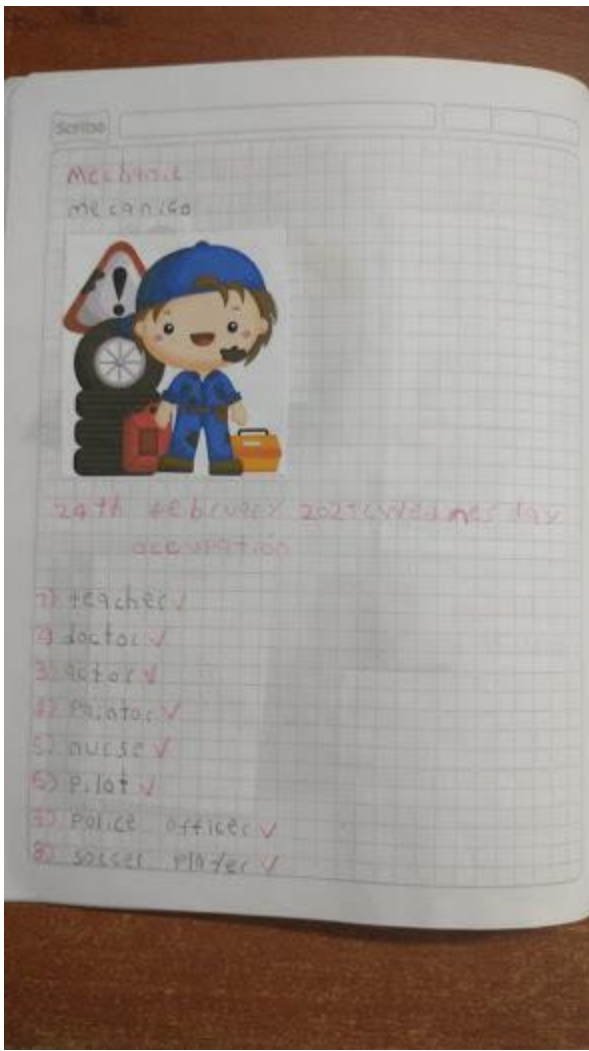 Scribe
Mechanic
mecanico
24th february 2021 Wednesday
occupation
1) teacher ✓
2) doctor ✓
3) actor ✓
4) Paintor ✓
5) nurse ✓
6) Pilot ✓
7) Police officer ✓
8) soccer player ✓